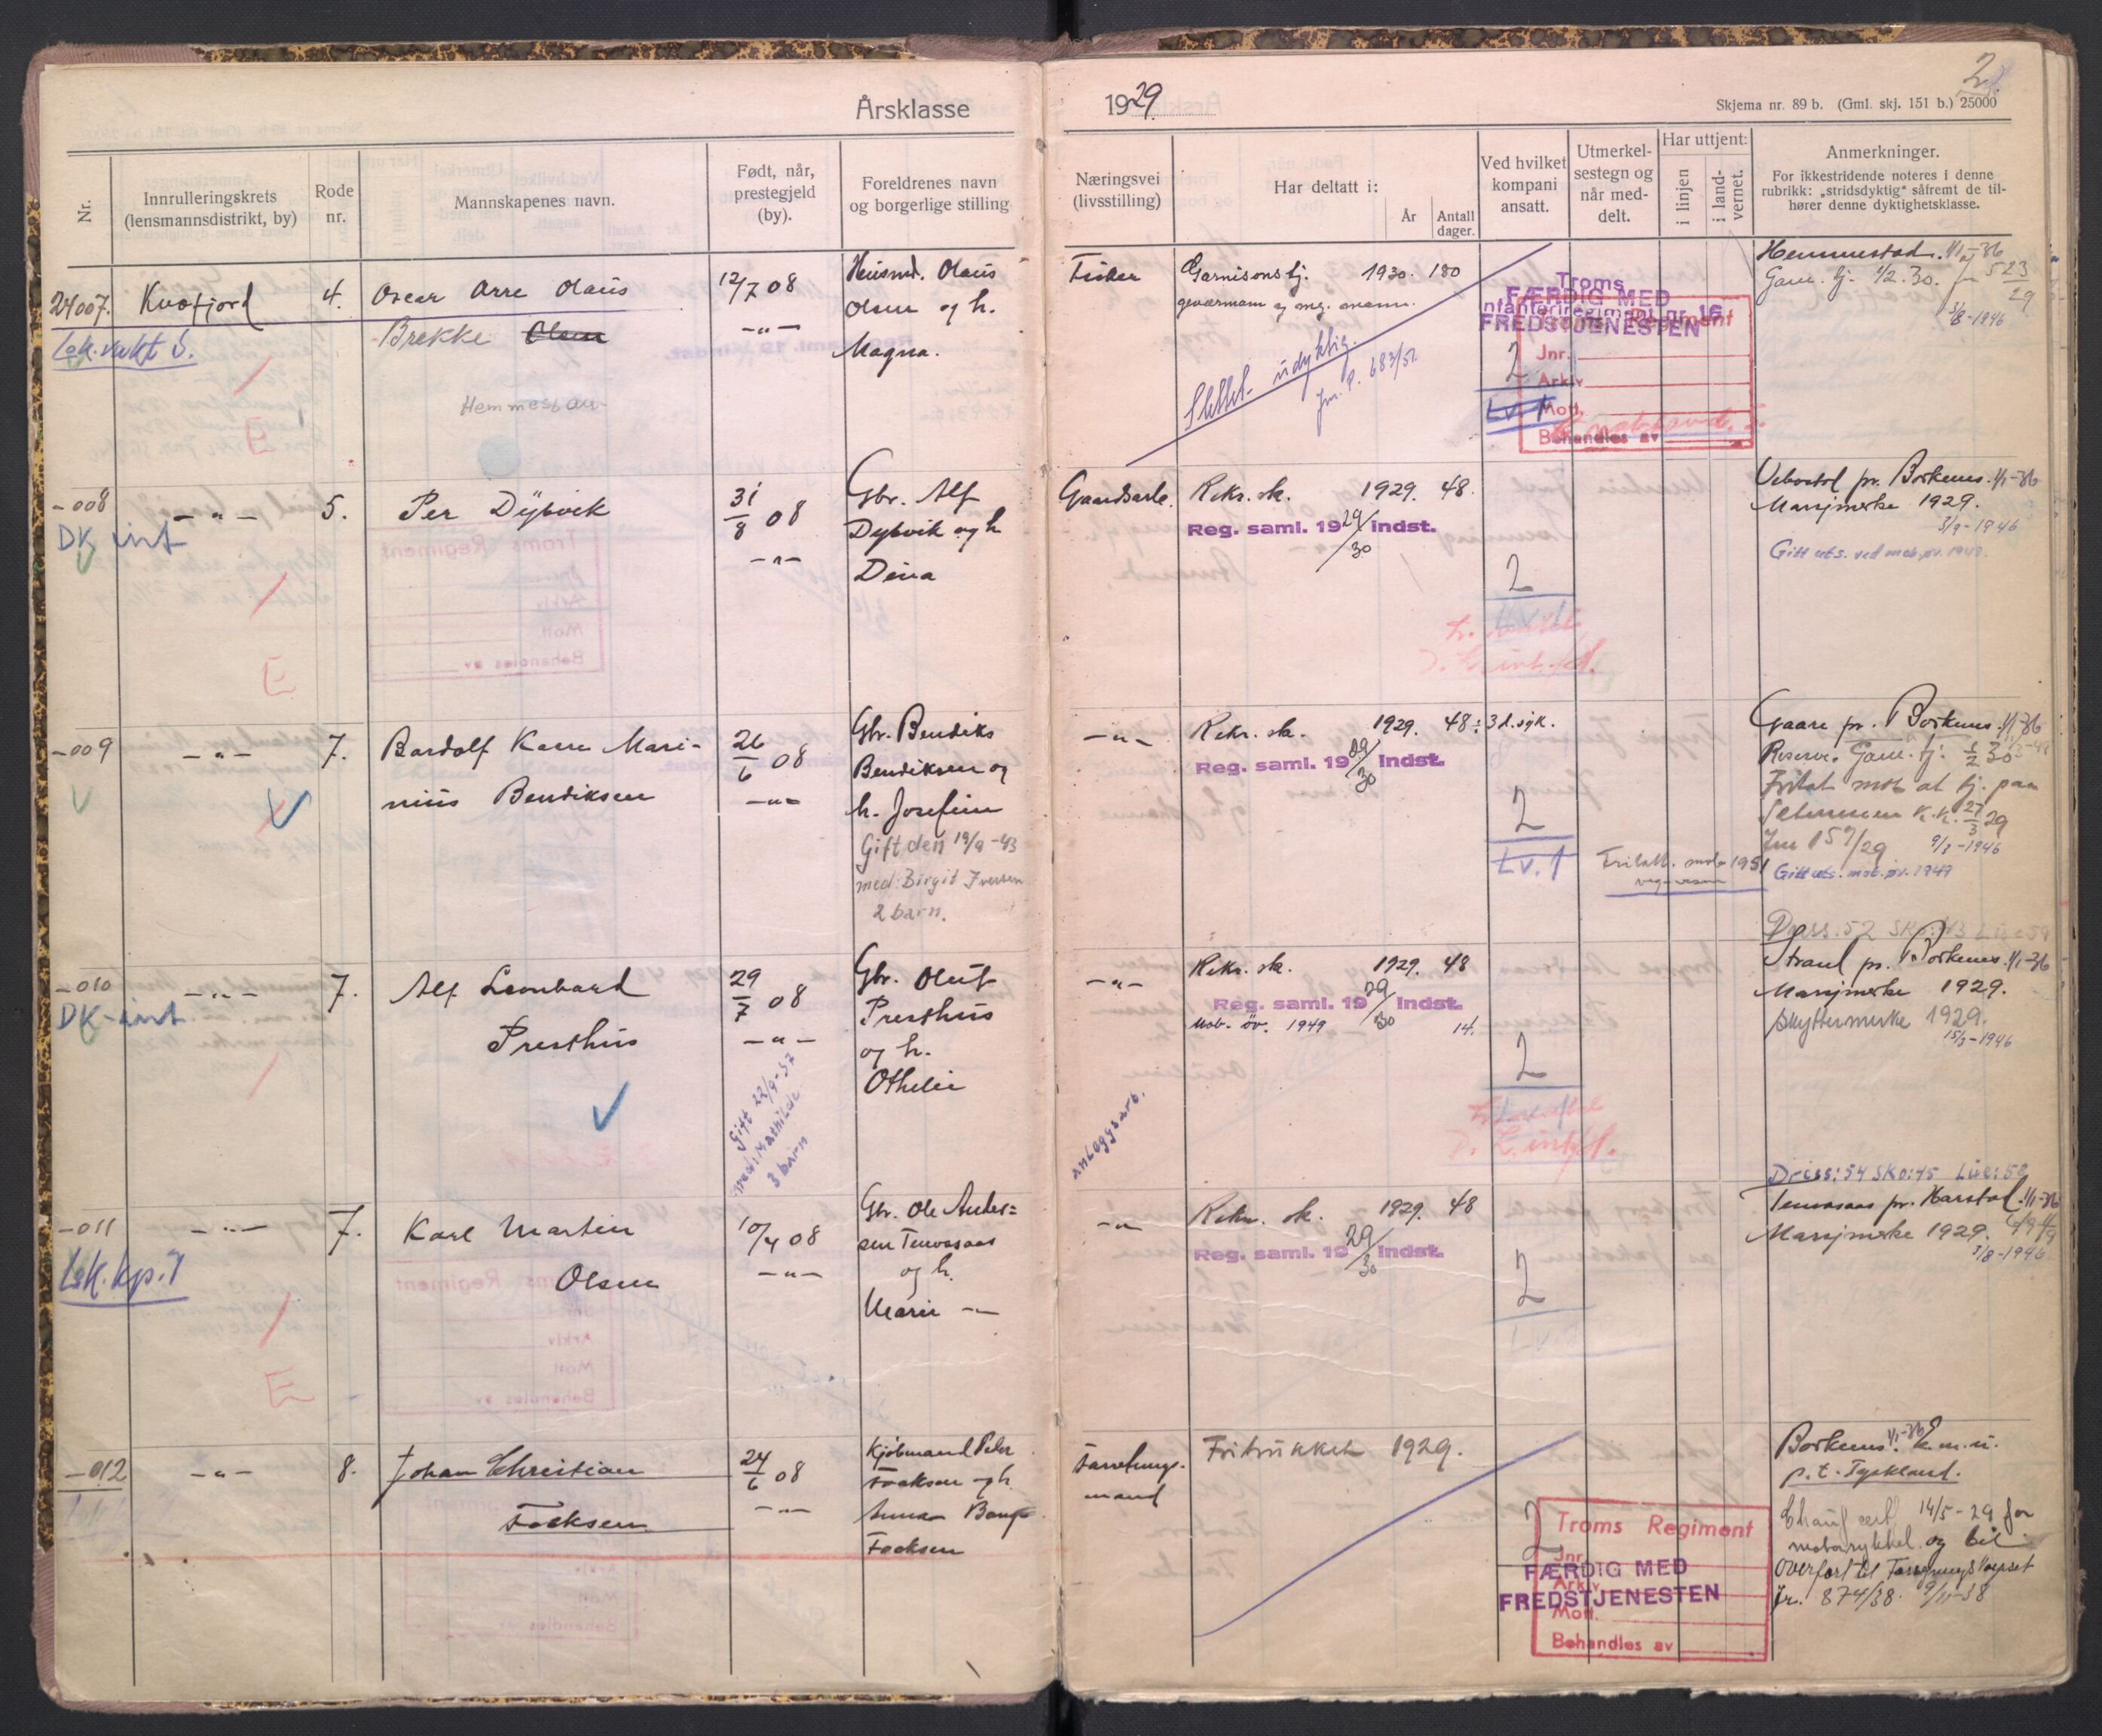 Årsklasse 1929.
2
Skjema nr. 89 b. (Gml. skj. 151 b.) 25000
Nr.
Innrulleringskrets
(lensmannsdistrikt, by)
Rode
nr.
Mannskapenes navn.
Født, når,
prestegjeld
(by).
Foreldrenes navn
og borgerlige stilling
Næringsvei
(livsstilling)
Har deltatt i:
År
Antall
dager.
Ved hvilket
kompani
ansatt.
Utmerkel-
sestegn og
når med-
delt.
Har uttjent:
i linjen
i land-
vernet.
Anmerkninger.
For ikkestridende noteres i denne
rubrikk: „stridsdyktig" såfremt de til-
hører denne dyktighetsklasse.
24007. Kvæfjord 4. Oscar Arre Olaus
Brekke Olsen
12/7 08
-"-
Husmd. Olaus
Olsen og h.
Magna.
Fisker
Garnisonstj. 1930. 180
geværmann og mg. mann.
Slettet udyktig.
Jnr. P. 683/51
Troms
Infanteriregiment nr. 16
FÆRDIG MED
FREDSTJENESTEN
Troms Regiment
Jnr.
Arkiv
Mott.
Behandles av
2
Lv. 1
Hemmestad. 1/1-36
Garn. tj. 1/2. 30. jr 523/29
3/8-1946
Lek. vakt S.
E
-008 -"- 5. Per Dybvik
31/8 08
-"-
Gbr. Alf
Dybvik og h
Dina
Gaardsarb.
Rekr. sk. 1929. 48.
Reg. saml. 1929/30 indst.
2
Vebostad pr. Borkenes. 1/1-36
Marsjmerke 1929.
3/9-1946
Gitt uts. ved mob.øv. 1949.
DK int
E
-009 -"- 7. Bardolf Kaare Mari-
nius Bendiksen
26/6 08
-"-
Gbr. Bendiks
Bendiksen og
h. Josefine
Gift den 19/9-43
med: Birgit Iversen
2 barn.
-"-
Rekr. sk. 1929. 48 ÷ 3 d. syk.
Reg. saml. 1929/30 indst.
2
Lv. 1
Fritatt mob 1951
Gaare pr. Borkenes. 1/1-36
Reserve. Garn. tj. 1/2 30
Fritat mot at tj. paa
Setermoen K.K. 27/3 29
Jnr 157/29 9/8-1946
Gitt uts. mob.øv. 1949
-010 -"- 7. Alf Leonhard
Presthus
29/7 08
-"-
Gift 22/9-37
med: Mathilde
3 barn
Gbr. Oluf
Presthus
og h.
Othelie
-"-
anleggsarb.
Rekr. sk. 1929. 48
Reg. saml. 1929/30 indst.
Mob. öv. 1949 14.
2
Strand pr. Borkenes. 1/1-36
Marsjmerke 1929.
Skyttermerke 1929.
15/3-1946
Driss: 54 Sko: 45 Lue: 58
DK-int
-011 -"- 7. Karl Martin
Olsen
10/4 08
-"-
Gbr. Ole Ander=
sen Tennvasaas
og h.
Marie -"-
-"-
Rekr. sk. 1929. 48
Reg. saml. 1929/30 indst.
2
Tennvasaas pr. Harstad. 1/1-36
Marsjmerke 1929.
3/8-1946
Lek. kp. 7
E
-012 -"- 8. Johan Christian
Focksen
24/6 08
-"-
Kjøbmand Peter
Focksen og h.
Anna Bang
Focksen
Forretnings-
mand
Fritrukket 1929.
2
Troms Regiment
Jnr.
Arkiv
Mott.
Behandles av
FÆRDIG MED
FREDSTJENESTEN
Borkenes. 1/1-36 E.m.u.
p.t. Tyskland.
Chauf. cert. 14/5-29 for
motorsykkel og bil
Overført til Forsyningskorpset
Jr. 874/38. 9/11-38